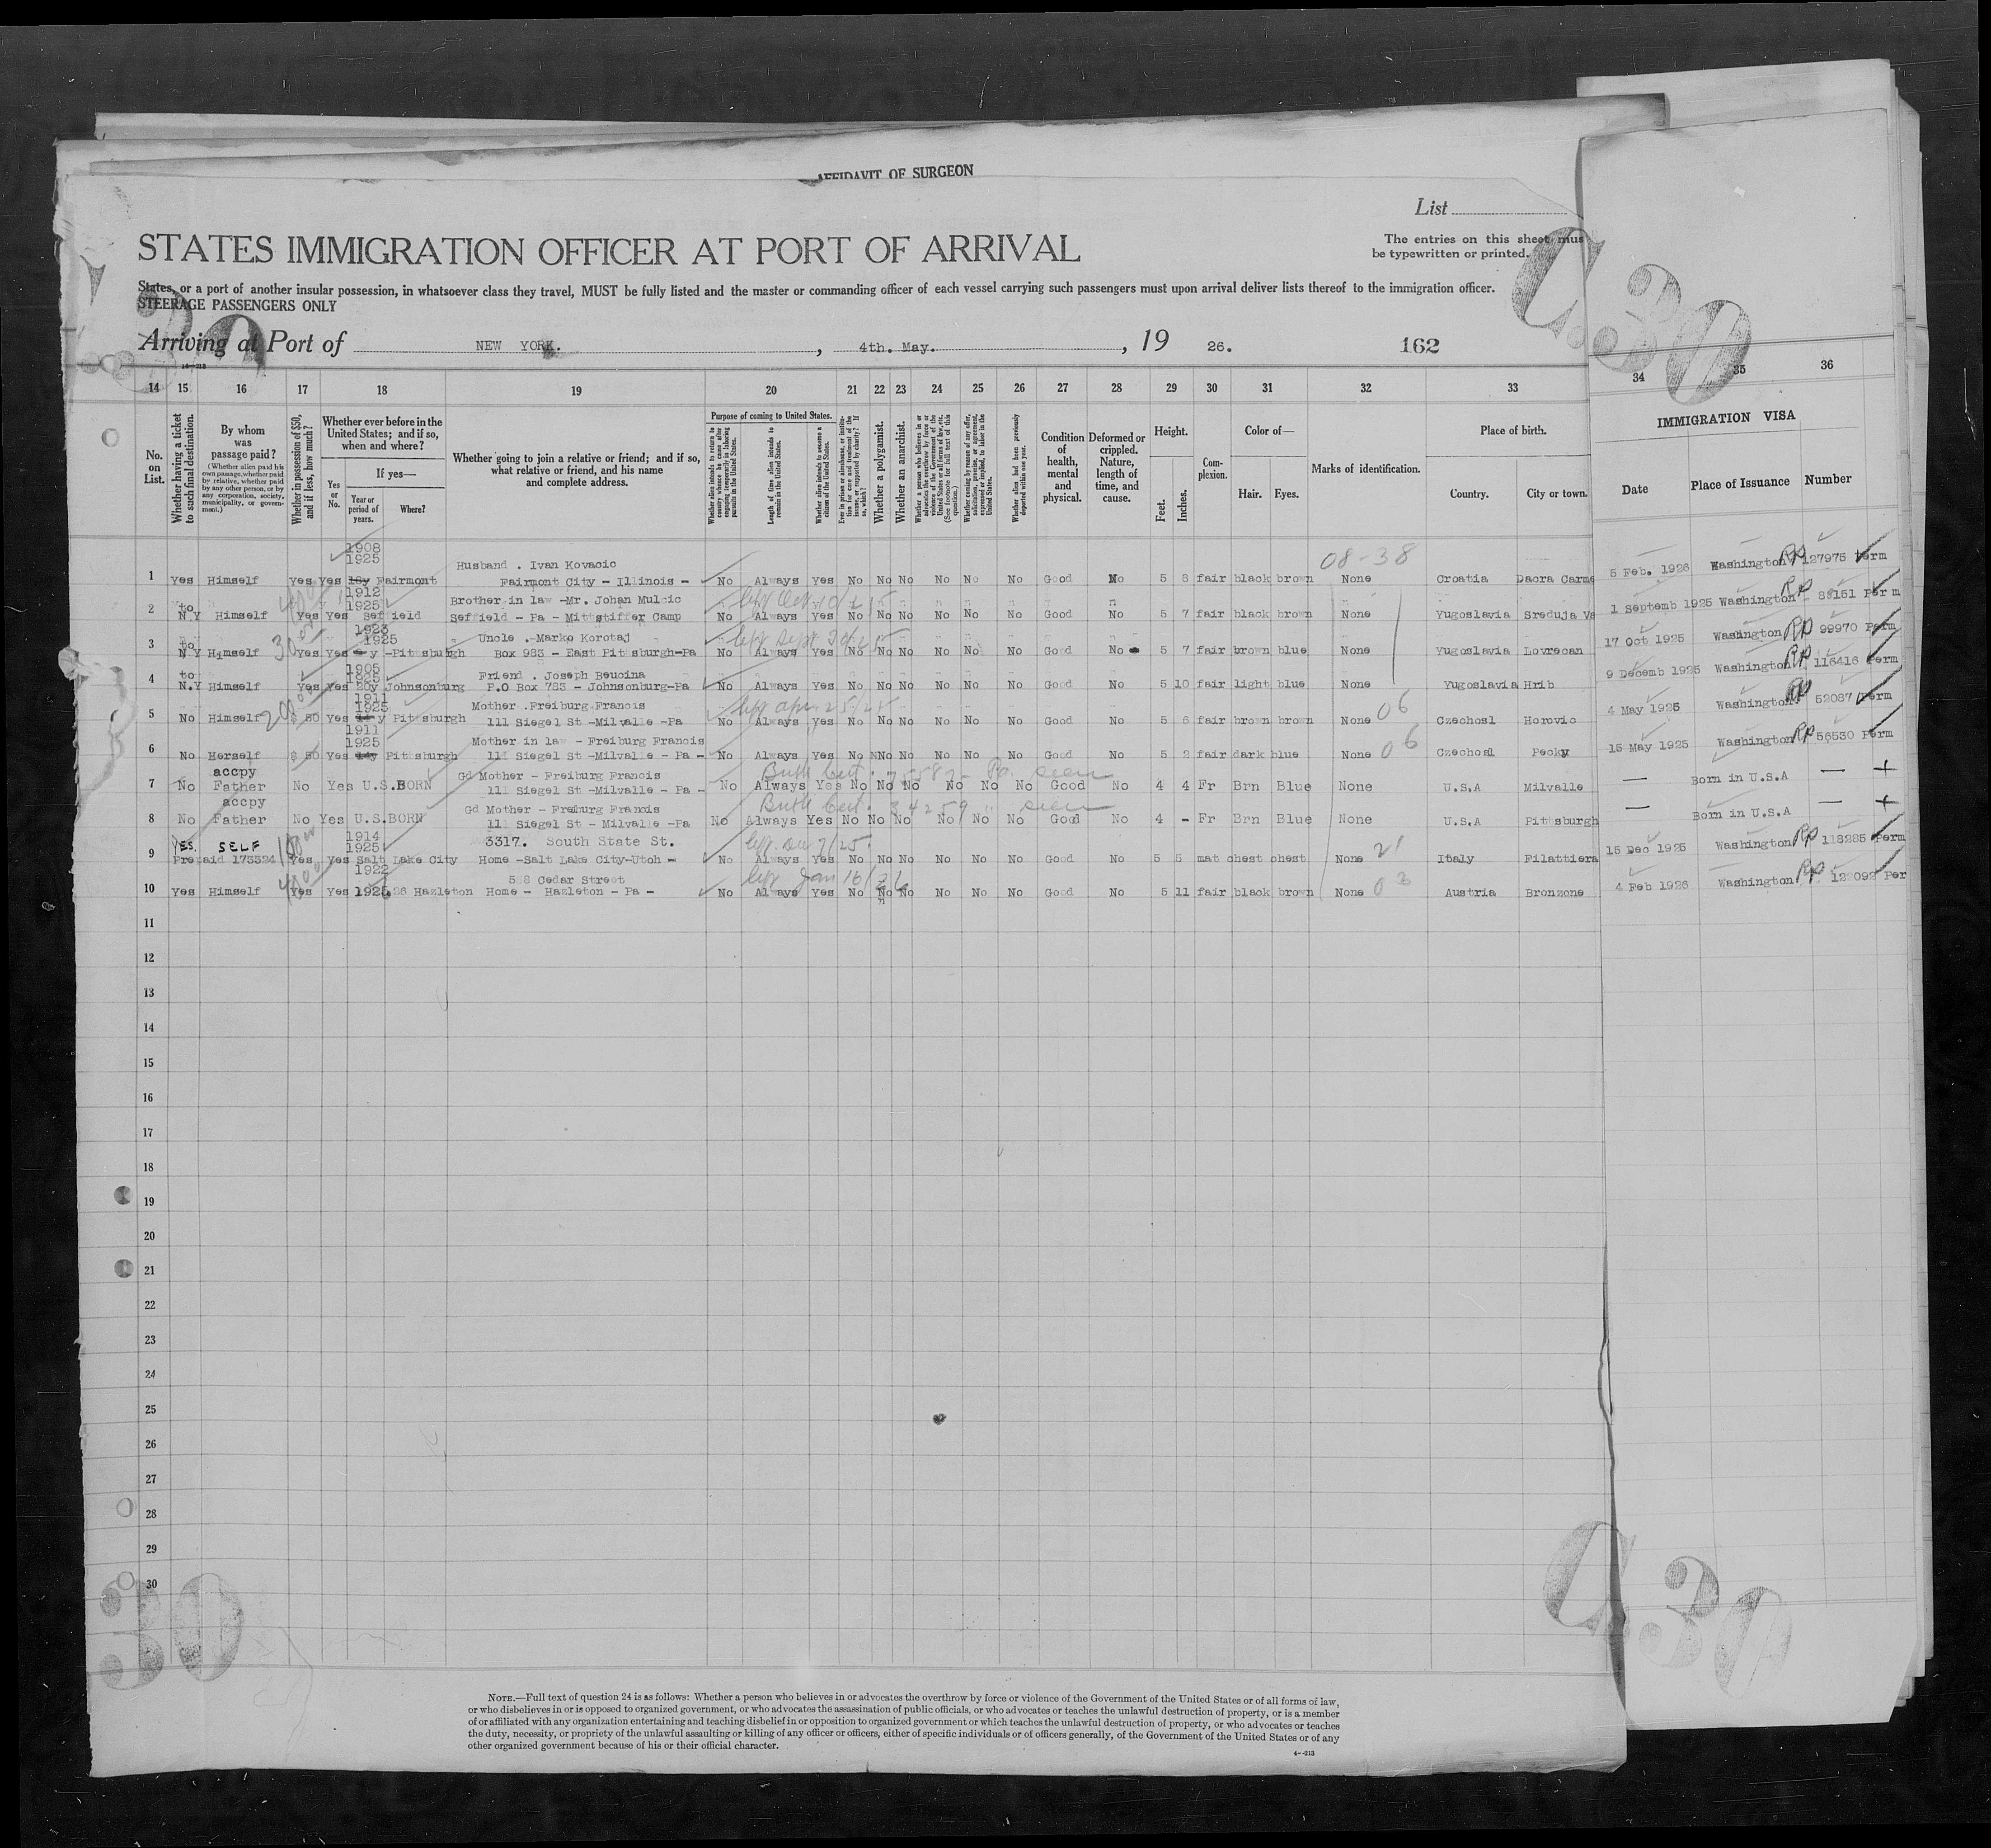 AFFIDAVIT OF SURGEON
List
STATES IMMIGRATION OFFICER AT PORT OF ARRIVAL
The entries on this sheet mus
be typewritten or printed.
States, or a port of another insular possession, in whatsoever class they travel, MUST be fully listed and the master or commanding officer of each vessel carrying such passengers must upon arrival deliver lists thereof to the immigration officer.
STEERAGE PASSENGERS ONLY
Arriving at Port of NEW YORK. , 4th. May. , 19 26. 162
14 15 16 17 18 19 20 21 22 23 24 25 26 27 28 29 30 31 32 33 34 35 36
No. on List.
Whether having a ticket to such final destination.
By whom was passage paid?
(Whether alien paid his own passage, whether paid by relative, whether paid by any other person, or by any corporation, society, municipality, or government.)
Whether in possession of $50, and if less, how much?
Whether ever before in the United States; and if so, when and where?
Yes or No.
If yes—
Year or period of years.
Where?
Whether going to join a relative or friend; and if so, what relative or friend, and his name and complete address.
Purpose of coming to United States.
Whether alien intends to return to country whence he came after engaging temporarily in laboring pursuits in the United States.
Length of time alien intends to remain in the United States.
Whether alien intends to become a citizen of the United States.
Whether a polygamist.
Whether an anarchist.
Whether alien had been previously deported within one year.
Condition of health, mental and physical.
Deformed or crippled. Nature, length of time, and cause.
Height.
Feet. Inches.
Complexion.
Color of—
Hair. Eyes.
Marks of identification.
Place of birth.
Country. City or town.
IMMIGRATION VISA
Date Place of Issuance Number
1908
1925
Husband . Ivan Kovacic
08-38
1 Yes Himself Yes Yes Fairmont Fairmont City - Illinois - No Always Yes No No No No No No Good No 5 8 fair black brown None Croatia Dacra Carme 5 Feb. 1926 Washington RP 127975 Perm
1912
1925
Brother in law -Mr. Johan Mulcic
2 to N Y Himself Yes Yes Seffield Seffield - Pa - Mittstiffer Camp No Always Yes No No No No No No Good No 5 7 fair black brown None Yugoslavia Sreduja Va 1 Septemb 1925 Washington RP 88151 Perm
1923
1925
Uncle .-Marko Korotaj
3 to N Y Himself Yes Yes y -Pittsburgh Box 983 - East Pittsburgh-Pa No Always Yes No No No No No No Good No 5 7 fair brown blue None Yugoslavia Lovrecan 17 Oct 1925 Washington RP 99970 Perm
1905
1925
Friend . Joseph Beucina
4 to N.Y Himself Yes Yes 20y Johnsonburg P.O Box 783 - Johnsonburg-Pa No Always Yes No No No No No No Good No 5 10 fair light blue None Yugoslavia Hrib 9 Decemb 1925 Washington RP 116416 Perm
1911
1925
Mother .Freiburg Francis
5 No Himself $ 50 Yes y Pittsburgh 111 Siegel St -Milvalle -Pa No Always Yes No No No No No No Good No 5 6 fair brown brown None 06 Czechosl Horovic 4 May 1925 Washington RP 52087 Perm
1911
1925
Mother in law - Freiburg Francis
6 No Herself $ 50 Yes Pittsburgh 111 Siegel St -Milvalle - Pa - No Always Yes No No No No No No Good No 5 2 fair dark blue None 06 Czechosl Pecky 15 May 1925 Washington RP 56530 Perm
accpy
Gd Mother - Freiburg Francis
Birth Cert. Pa. seen
7 No Father No Yes U.S.BORN 111 Siegel St -Milvalle - Pa - No Always Yes No No No No No No Good No 4 4 Fr Brn Blue None U.S.A Milvalle — Born in U.S.A —
accpy
Gd Mother - Freiburg Francis
Birth Cert. 34259 " seen
8 No Father No Yes U.S.BORN 111 Siegel St - Milvalle -Pa No Always Yes No No No No No No Good No 4 - Fr Brn Blue None U.S.A Pittsburgh — Born in U.S.A —
YES SELF
1914
1925
3317. South State St.
left Dec 7/25.
9 Prepaid 173324 Yes Yes Salt Lake City Home -Salt Lake City-Utoh - No Always Yes No No No No No No Good No 5 5 mat chest chest None 21 Italy Filattiera 15 Dec 1925 Washington RP 118285 Perm
1922
588 Cedar Street
left Jan 16/26
10 Yes Himself Yes Yes 1925 26 Hazleton Home - Hazleton - Pa - No Always Yes No No No No No No Good No 5 11 fair black brown None 03 Austria Bronzone 4 Feb 1926 Washington RP 122092 Per
11
12
13
14
15
16
17
18
19
20
21
22
23
24
25
26
27
28
29
30
C30
30
NOTE.—Full text of question 24 is as follows: Whether a person who believes in or advocates the overthrow by force or violence of the Government of the United States or of all forms of law,
or who disbelieves in or is opposed to organized government, or who advocates the assassination of public officials, or who advocates or teaches the unlawful destruction of property, or is a member
of or affiliated with any organization entertaining and teaching disbelief in or opposition to organized government or which teaches the unlawful destruction of property, or who advocates or teaches
the duty, necessity, or propriety of the unlawful assaulting or killing of any officer or officers, either of specific individuals or of officers generally, of the Government of the United States or of any
other organized government because of his or their official character.